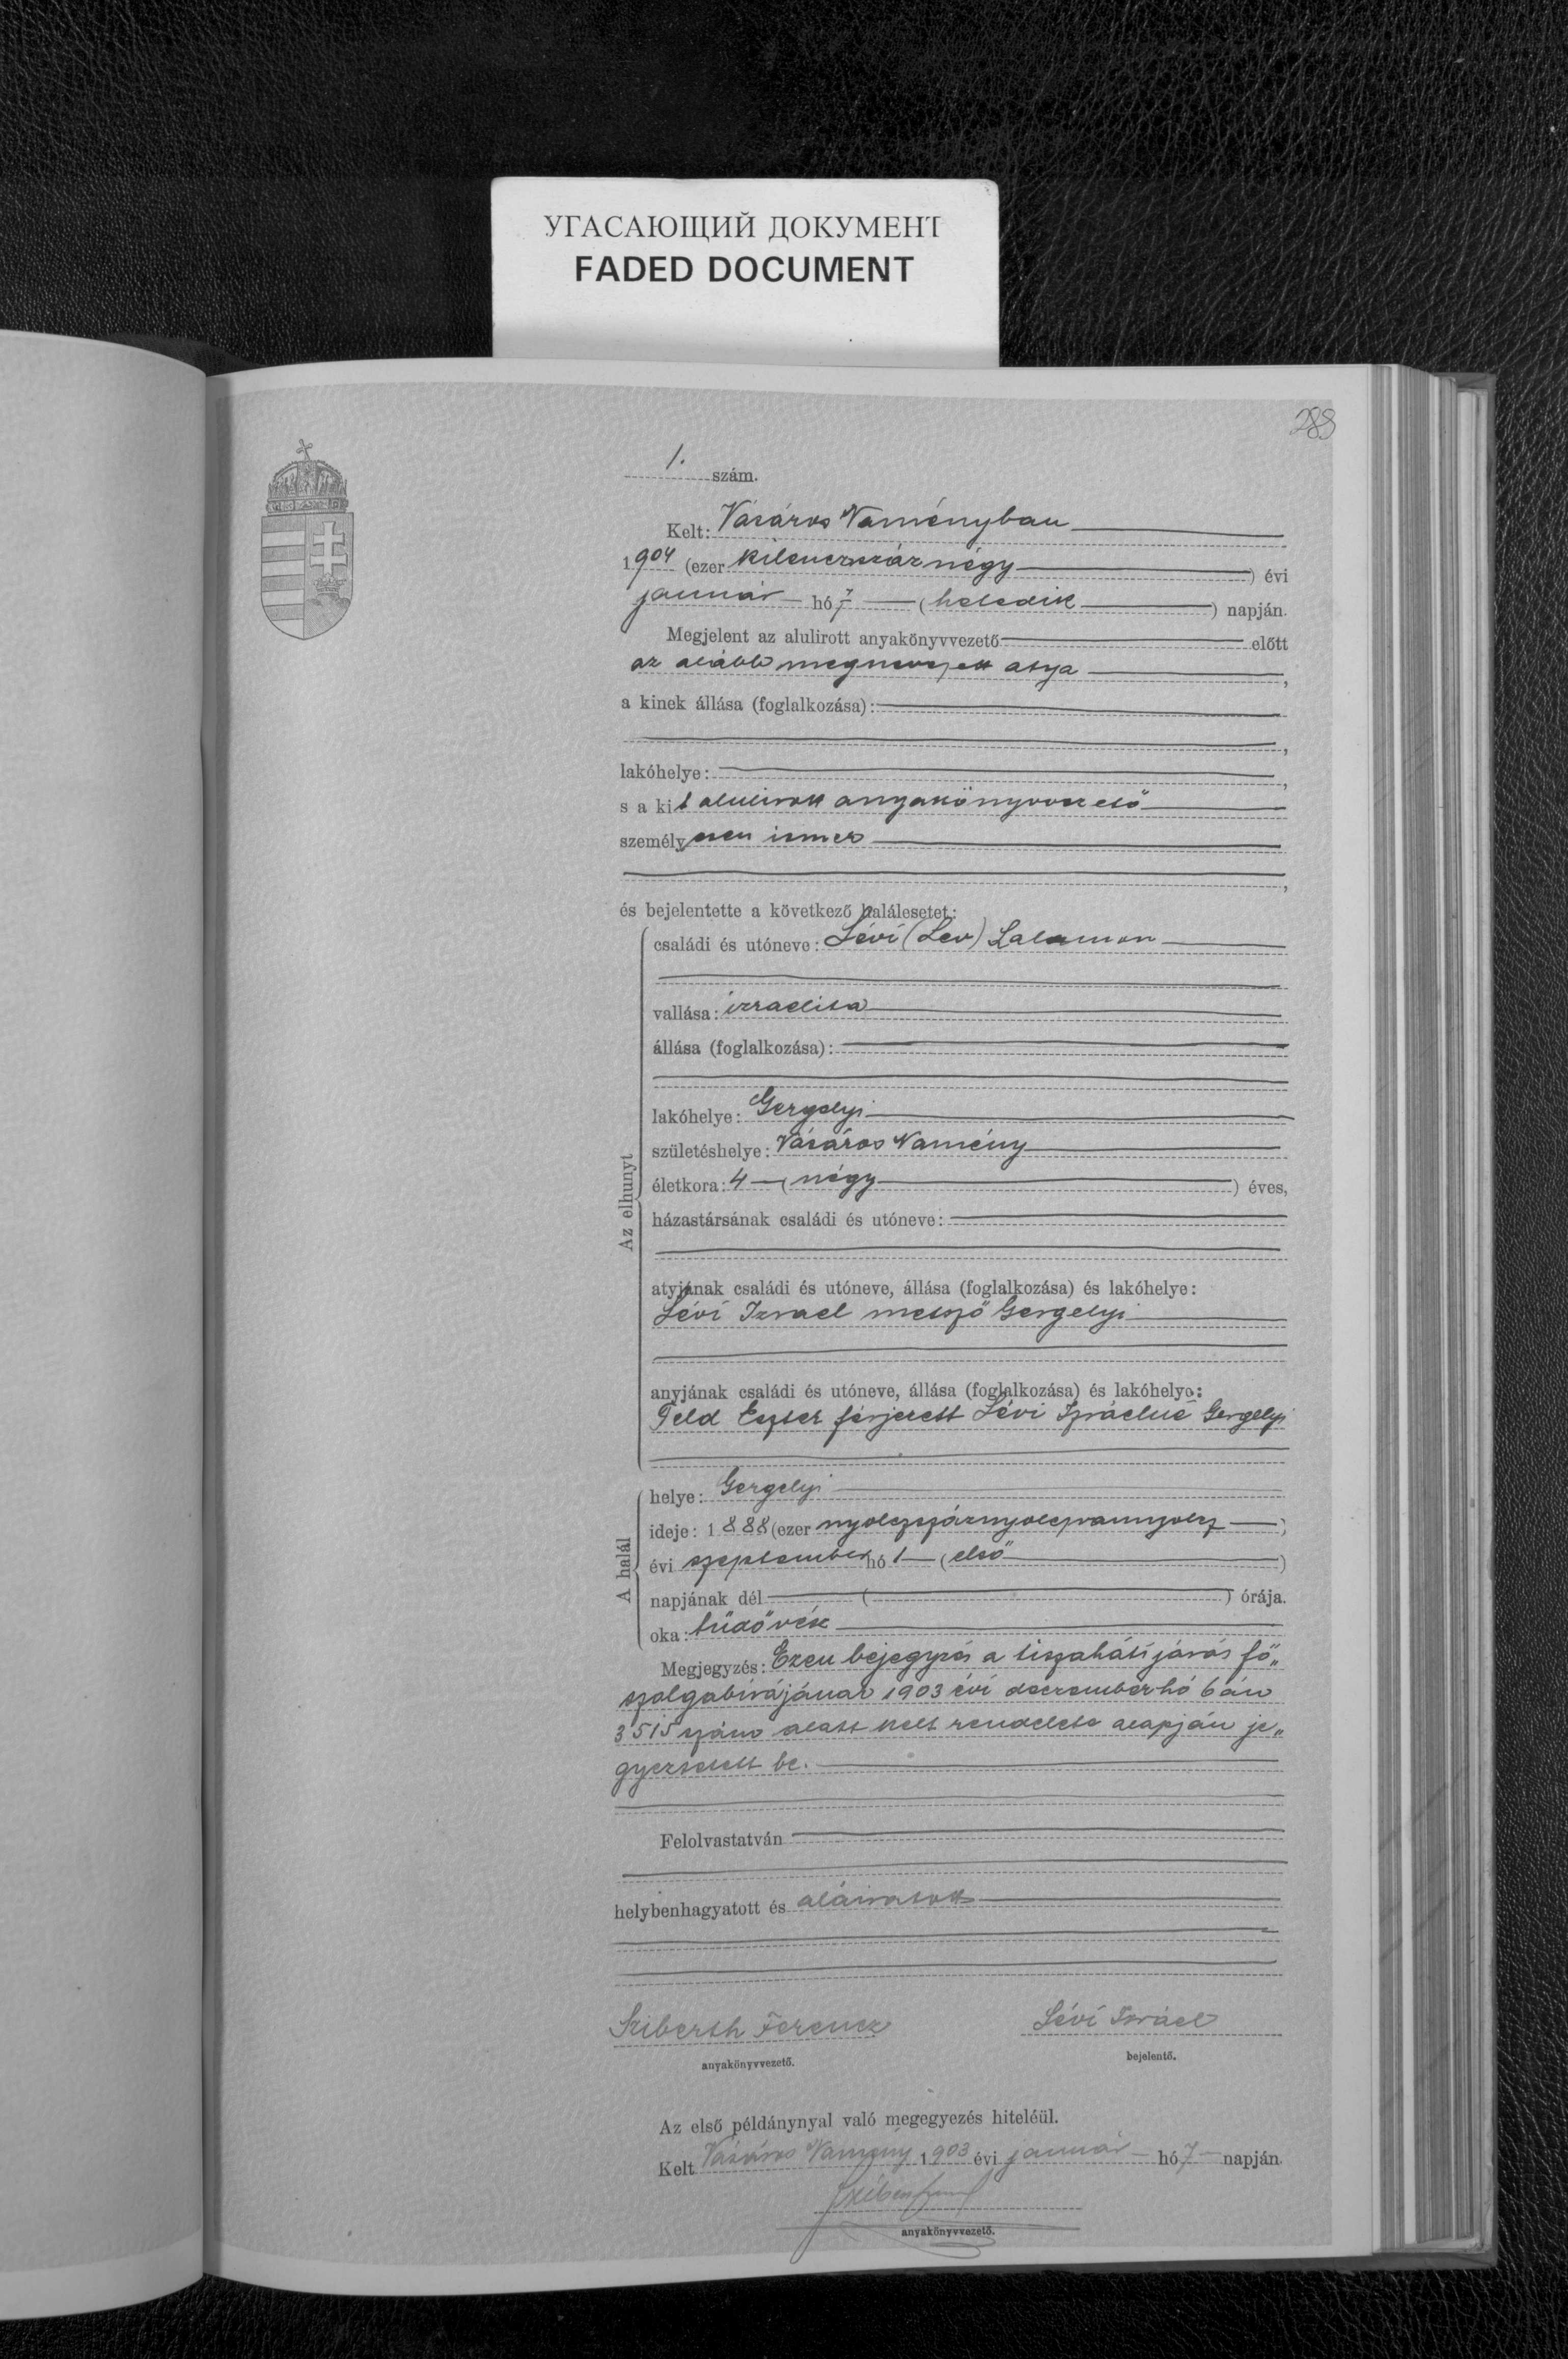 УГАСАЮЩИЙ ДОКУМЕНТ
FADED DOCUMENT
289
1. szám.
Kelt: Vásáros Naményban
1904 (ezer kilenczszáznégy) évi
január hó 7 (hetedik) napján.
Megjelent az alulirott anyakönyvvezető előtt
az alább megnevezett atya,
a kinek állása (foglalkozása):
lakóhelye:
s a kit alulirott anyakönyvvezető
személyesen ismer
és bejelentette a következő halálesetet:
családi és utóneve: Lévi (Lev) Salamon
vallása: izraelita
állása (foglalkozása):
lakóhelye: Gergelyi
születéshelye: Vásáros Namény
életkora: 4 (négy) éves,
házastársának családi és utóneve:
Az elhunyt
atyjának családi és utóneve, állása (foglalkozása) és lakóhelye:
Lévi Izrael metsző Gergelyi
anyjának családi és utóneve, állása (foglalkozása) és lakóhelye:
Feld Eszter férjezett Lévi Izráelné Gergelyi
helye: Gergelyi
ideje: 1888 (ezer nyolczszáznyolczvannyolcz)
évi szeptember hó 1 (első)
napjának dél ( ) órája.
oka: tüdővész
A halál
Megjegyzés: Ezen bejegyzés a tiszaháti járás fő„
szolgabirájának 1903 évi deczember hó 6 án
3515 szám alatt kelt rendelete alapján je„
gyeztetett be.
Felolvastatván
helybenhagyatott és aláiratott
Sziberth Ferencz
anyakönyvvezető.
Lévi Izráel
bejelentő.
Az első példánynyal való megegyezés hiteléül.
Kelt Vásáros Namény 1903 évi január hó 7 napján.
anyakönyvvezető.